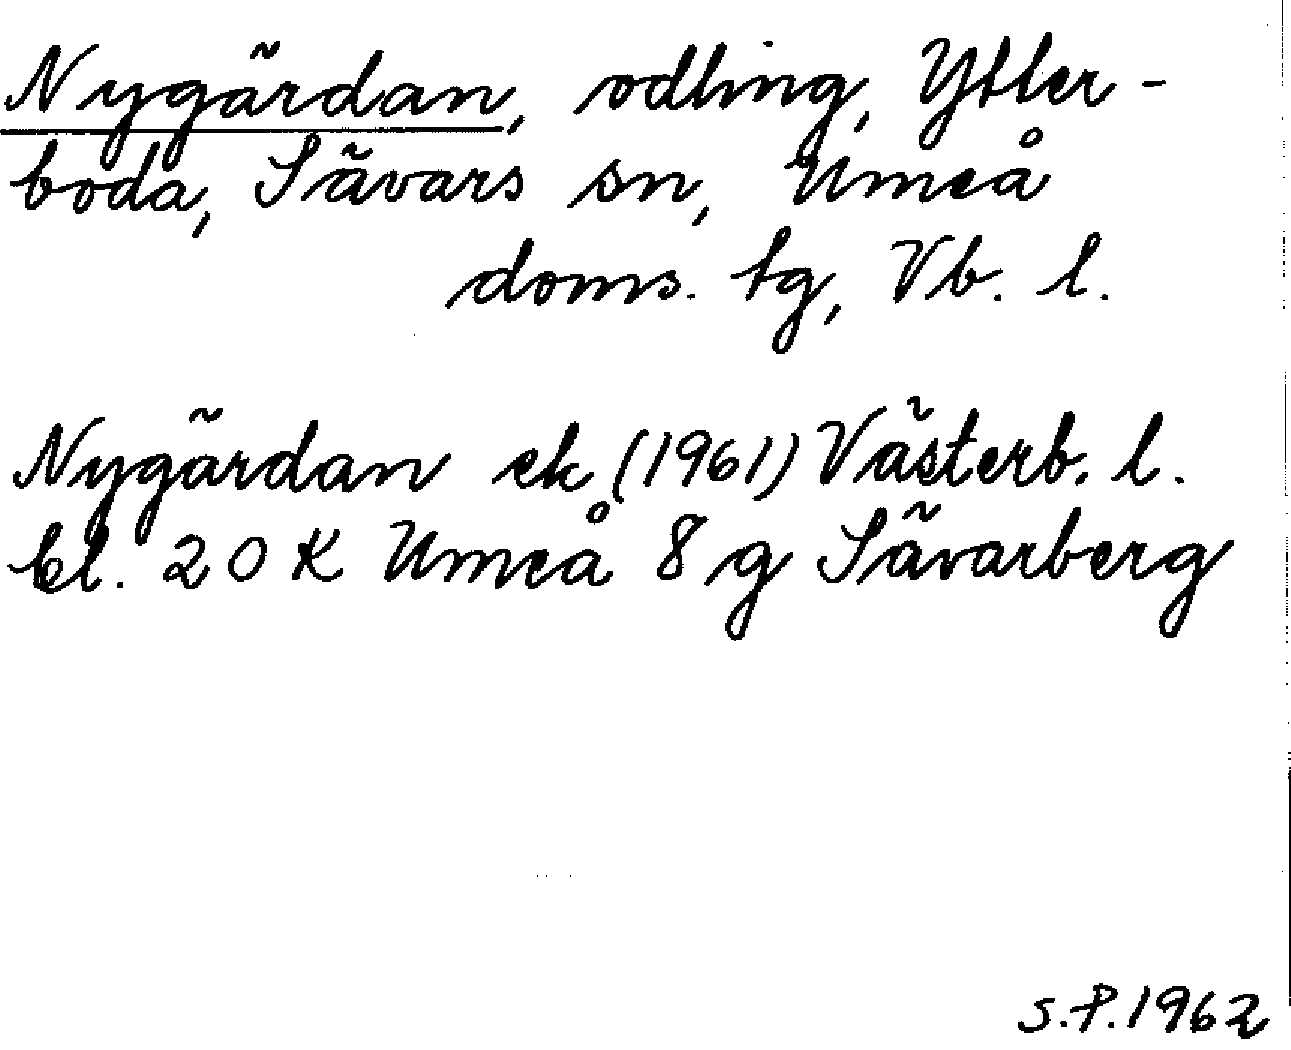 Nygärdan, odling, Ytter-
boda, Sävars sn, Umeå
doms. tg, Vb. l.
Nygärdan ek (1961) Västerb. l.
bl. 20 K Umeå 8 g Sävarberg
S.P. 1962